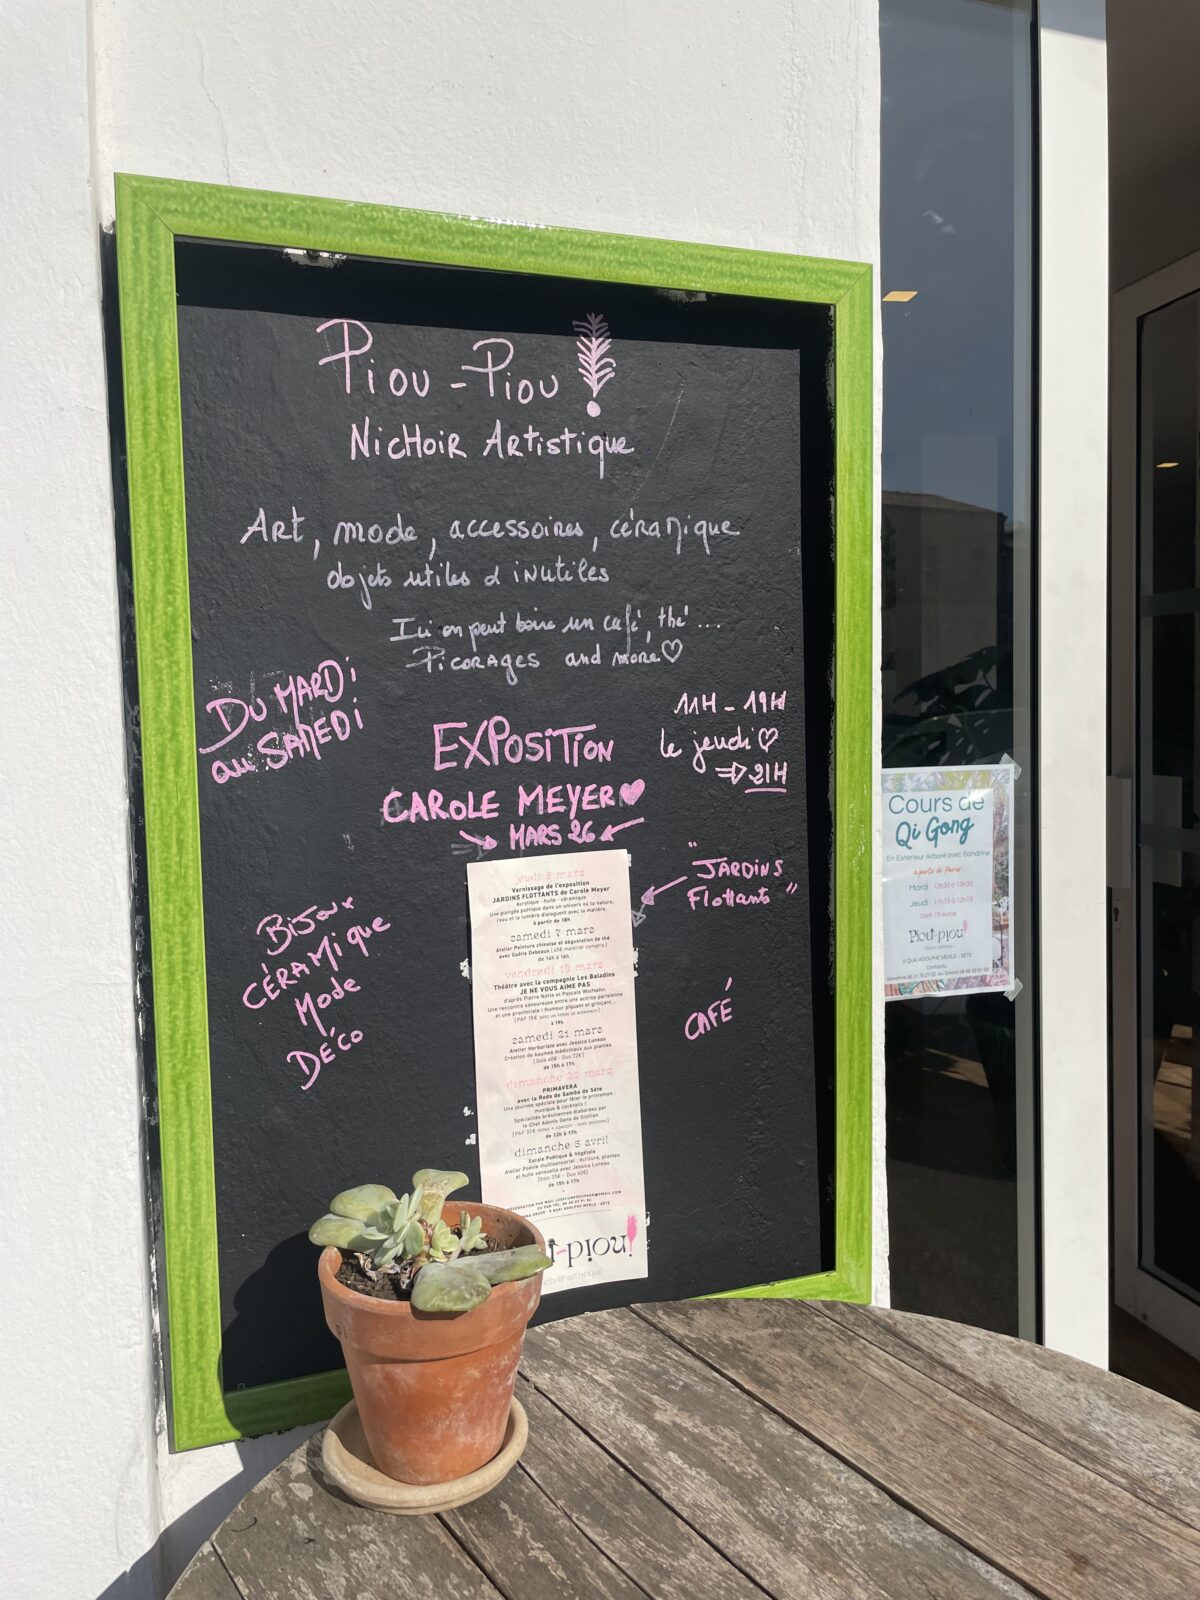 Piou-Piou!
Nichoir Artistique
Art, mode, accessoires, céramique
objets utiles & inutiles
Ici on peut boire un café, thé...
Picorages and more ♡
Du MARDi
au SAMEDi
11H - 19H
le jeudi ♡
⇒ 21H
EXPOSITION
CAROLE MEYER ♥
MARS 26
"JARDINS
Flottants"
Bijoux
CÉRAMique
Mode
DÉCO
CAFÉ
jeudi 5 mars
Vernissage de l'exposition
JARDINS FLOTTANTS de Carole Meyer
Acrylique - huile - céramique
Une plongée poétique dans un univers où la nature,
l'eau et la lumière dialoguent avec la matière.
à partir de 18h
samedi 7 mars
Atelier Peinture chinoise et dégustation de thé
avec Gaëlle Debeaux (45€ matériel compris)
de 14h à 16h
vendredi mars
Théâtre avec la compagnie Les Baladins
JE NE VOUS AIME PAS
d'après Pierre Notte et Pascale
Une rencontre savoureuse entre une actrice parisienne
et une provinciale ! Humour piquant et grinçant...
(PAF 15€
à 19h
samedi 21 mars
Atelier Herboriste avec Jessica Luneau
Création de baumes médicinaux aux plantes
(Solo 40€ - Duo 72€)
de 15h à 17h
dimanche 22 mars
PRIMAVERA
avec la Roda de Samba de Sète
Une journée spéciale pour fêter le printemps :
musique & cocktails !
Spécialités brésiliennes élaborées par
le Chef Adonis Gans de
(PAF 32€
de 12h à 17h
dimanche 5 avril
Escale Poétique & Végétale
Atelier Poésie multisensoriel : écriture, plantes
et huile sensuelle avec Jessica Luneau
(Solo 35€ - Duo 60€)
de 15h à 17h
-piou!
artistique
Cours de
Qi Gong
En Exterieur Arboré avec Sandrine
a partir de fevrier
Mardi 12h30 à 13h30
Jeudi 11h15 à 12h15
Tarif : 15 euros
Piou-piou!
5 QUAI ADOLPHE MERLE - SETE
Contacts :